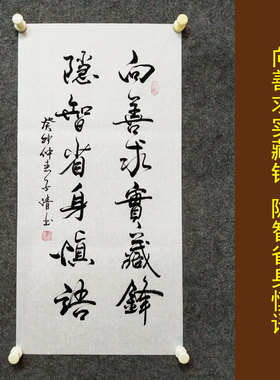 向善求實藏鋒
隱智省身慎語
癸卯仲春子清书
向善求实藏锋 隐智省身慎语